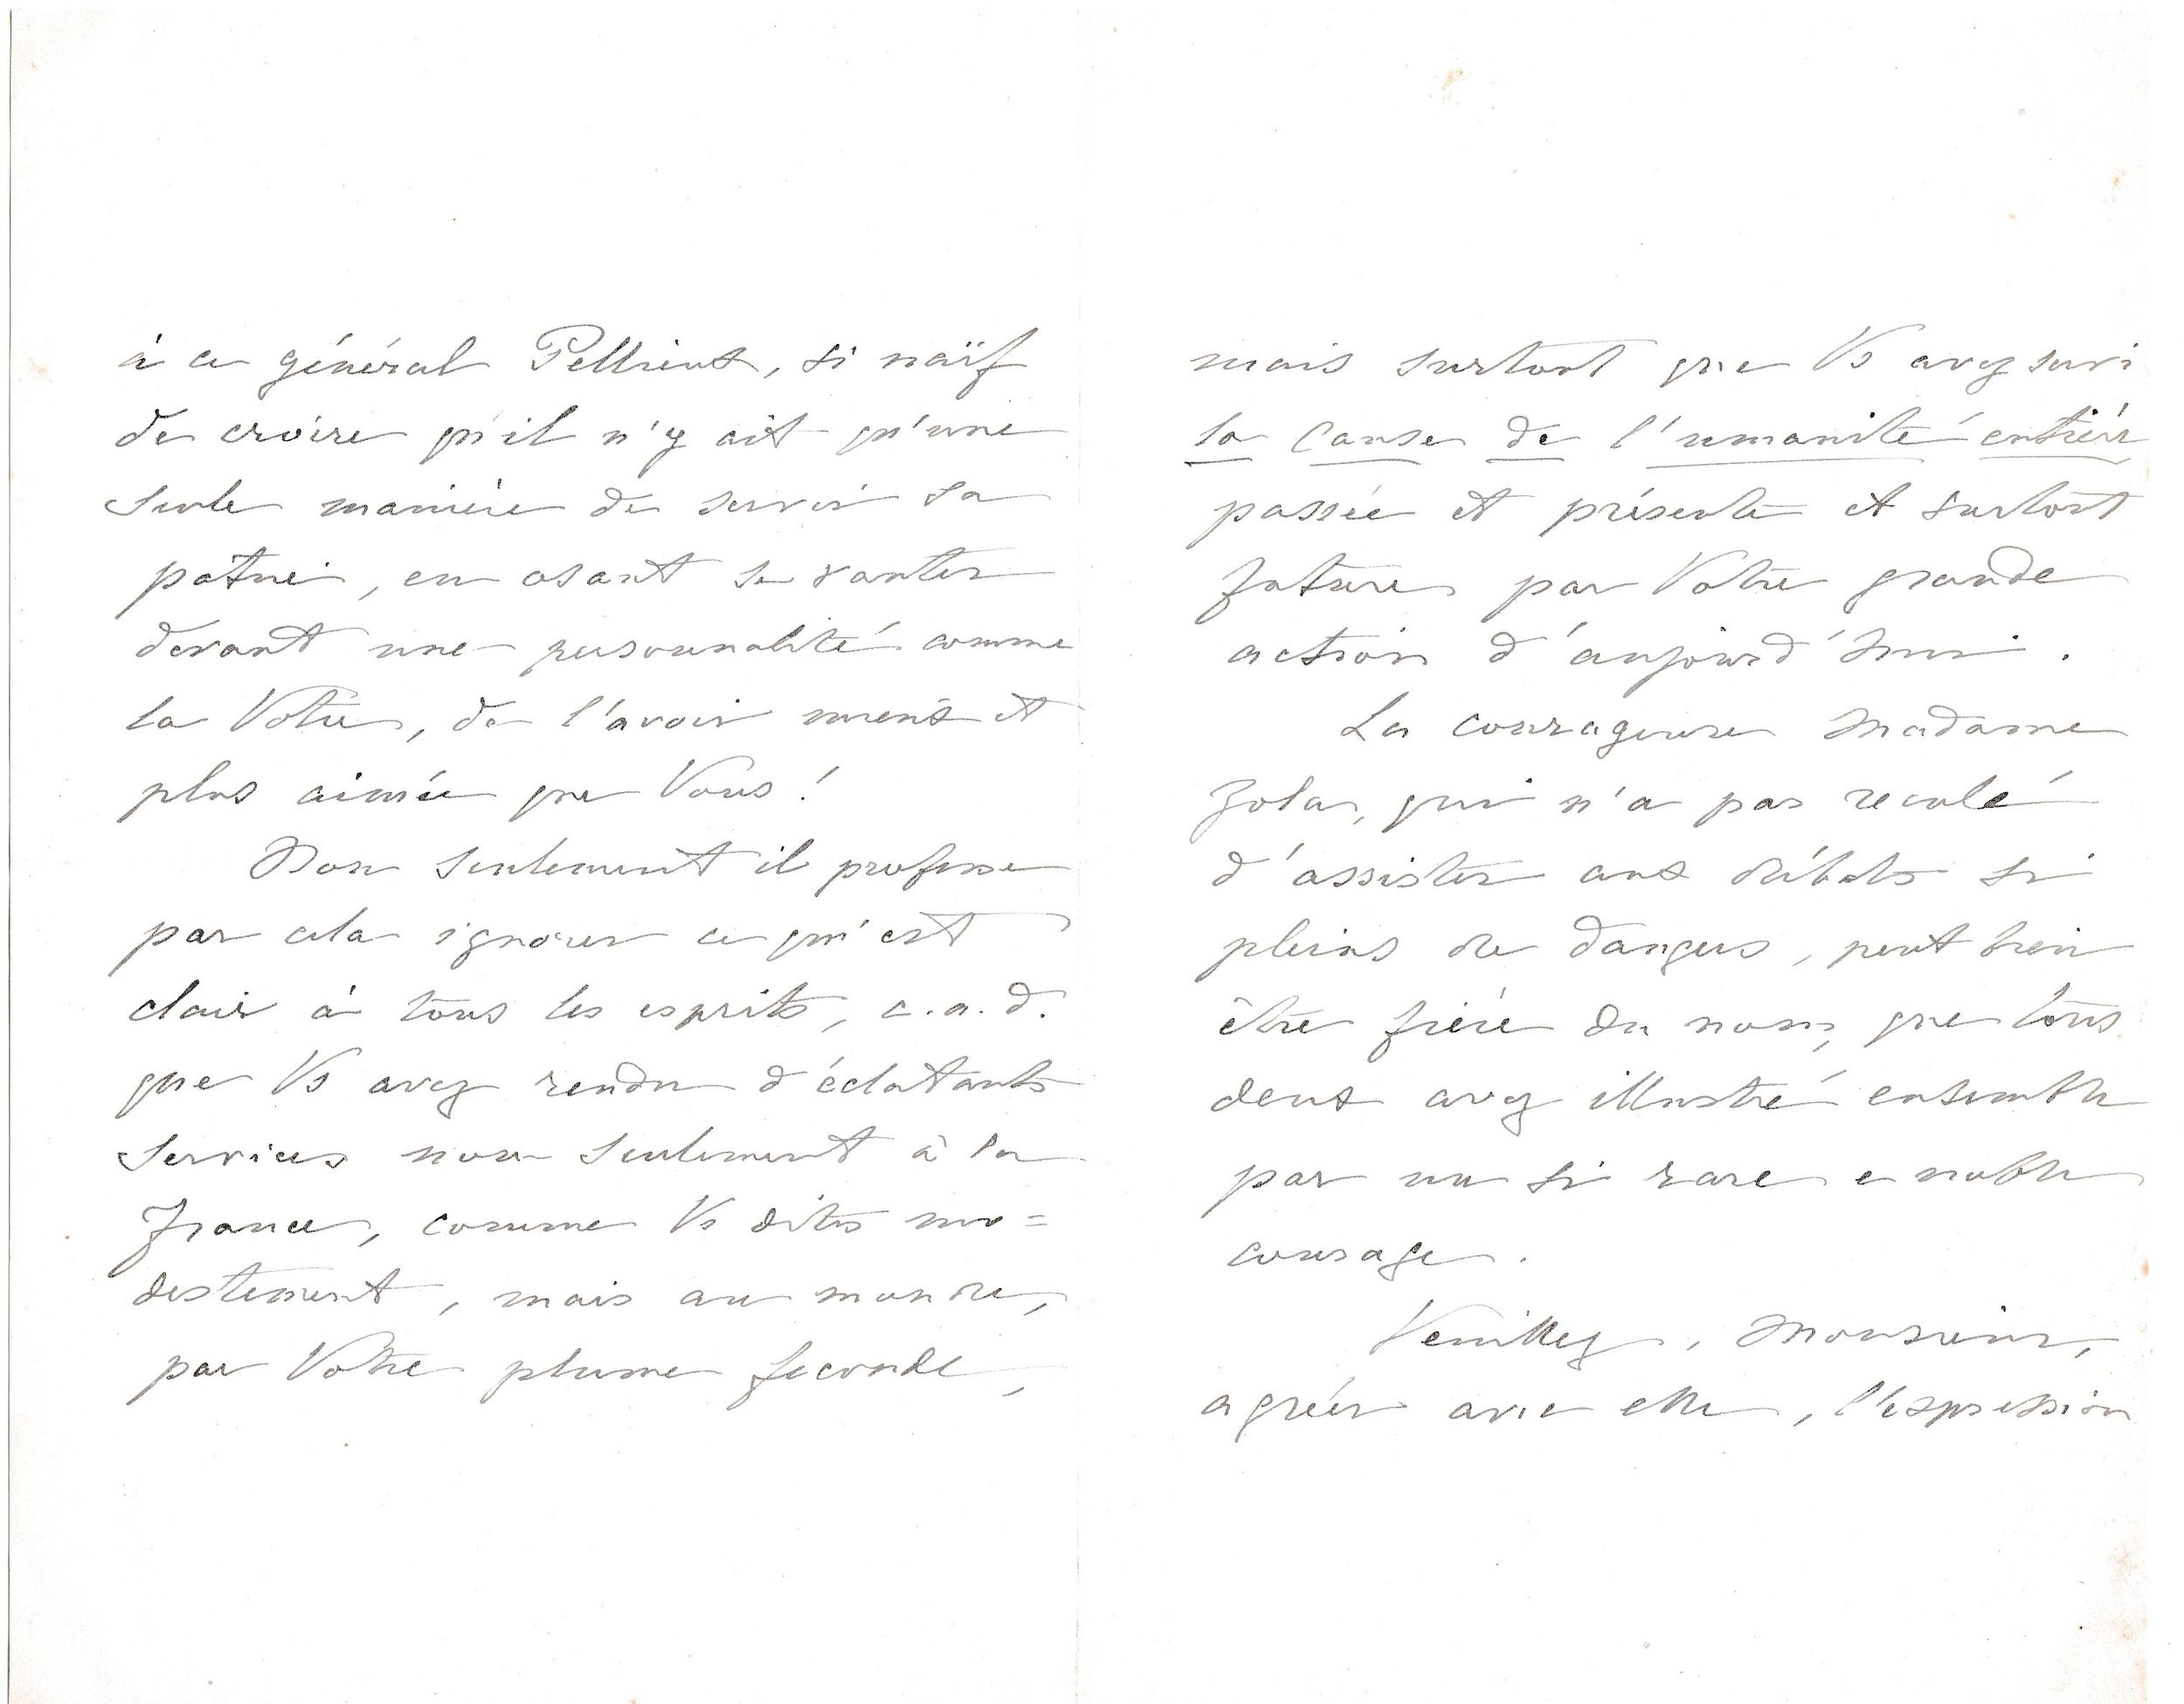 à ce général Pellieux, si naïf
de croire qu'il n'y ait qu'une
seule manière de servir sa
patrie, en osant se vanter
devant une personnalité comme
la Votre, de l'avoir mieux et
plus aimée que Vous!
Non seulement il professe
par cela ignorer ce qui est
clair à tous les esprits, c.a.d.
que Vs avez rendu d'éclatants
services non seulement à la
France, comme Vs dites mo=
destement, mais au monde,
par Votre plume feconde,
mais surtout que Vs avez servi
la Cause de l'umanité entière
passée et présente et surtout
future par Votre grande
action d'aujourd'hui.
La courageuse Madame
Zola, qui n'a pas reculé
d'assister aux débats si
pleins de dangers, peut bien
être fière du nom, que tous
deux avez illustré ensemble
par un si rare e noble
courage.
Veuillez, Monsieur,
agréer avec elle, l'expression